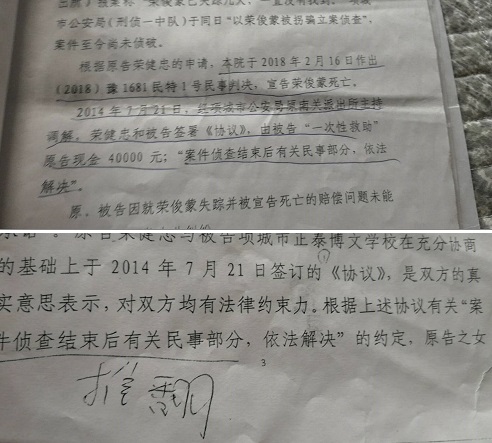 市公安局(刑侦一中队)于同日“以荣俊蒙被拐骗立案侦查”,
案件至今尚未侦破。
根据原告荣健忠的申请,本院于2018年2月16日作出
(2018)豫1681民特1号民事判决,宣告荣俊蒙死亡。
2014年7月21日,经项城市公安局莲南关派出所主持
调解,荣健忠和被告签署《协议》,由被告“一次性救助”
原告现金40000元;“案件侦查结束后有关民事部分,依法
解决”。
原、被告因就荣俊蒙失踪并被宣告死亡的赔偿问题未能
原告荣健忠与被告项城市正泰博文学校在充分协商
的基础上于2014年7月21日签订的《协议》,是双方的真
实意思表示,对双方均有法律约束力。根据上述协议有关“案
件侦查结束后有关民事部分,依法解决”的约定,原告之女
3
推翻